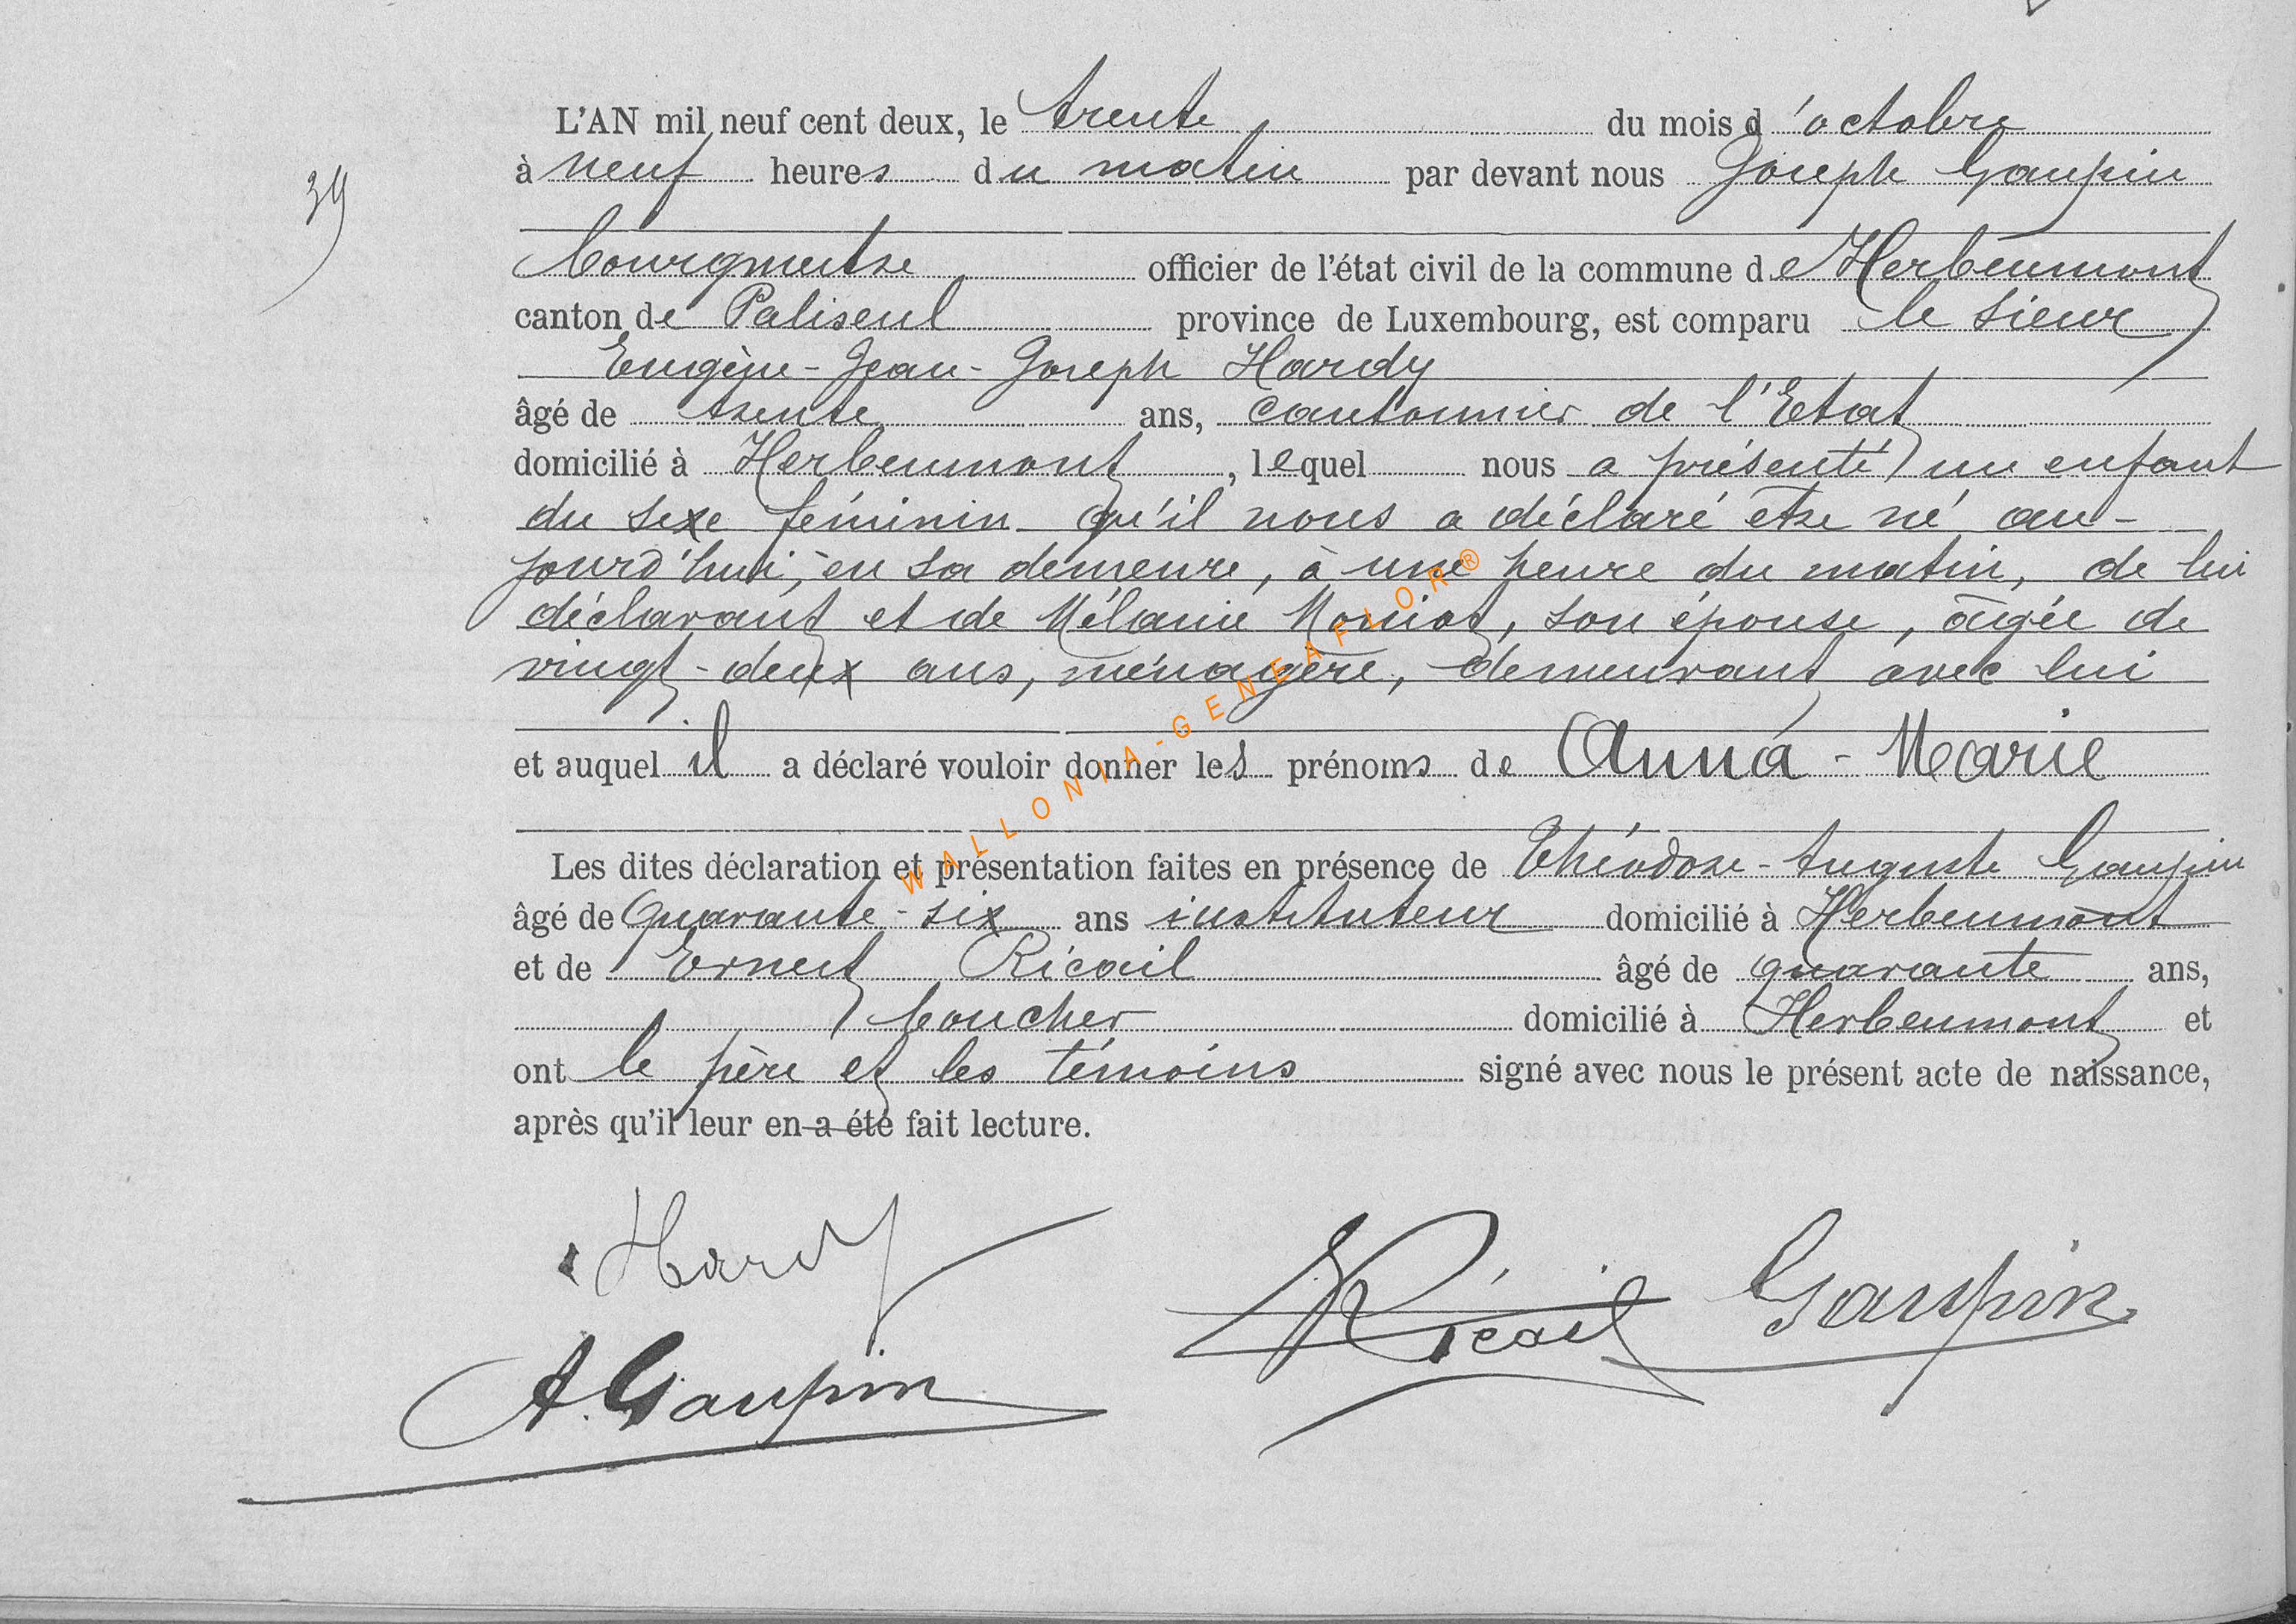 L'AN mil neuf cent deux, le trente du mois d'octobre
39
à neuf heures du matin par devant nous Joseph Gaupin
bourgmestre officier de l'état civil de la commune de Herbeumont
canton de Paliseul province de Luxembourg, est comparu le sieur
Eugène-Jean-Joseph Hardy
âgé de trente ans, cantonnier de l'Etat
domicilié à Herbeumont, lequel nous a présenté un enfant
du sexe féminin qu'il nous a déclaré être né au-
jourd'hui, en sa demeure, à une heure du matin, de lui
déclarant et de Mélanie Moniot, son épouse, âgée de
vingt-deux ans, ménagère, demeurant avec lui
et auquel il a déclaré vouloir donner les prénoms de Anna-Marie
Les dites déclaration et présentation faites en présence de Théodore-Auguste Gaupin
âgé de quarante-six ans instituteur domicilié à Herbeumont
et de Ernest Ricail âgé de quarante ans,
boucher domicilié à Herbeumont et
ont le père et les témoins signé avec nous le présent acte de naissance,
après qu'il leur en a été fait lecture.
Hardy
Ricail Gaupin
A. Gaupin
WALLONIA-GENEAFLOR®